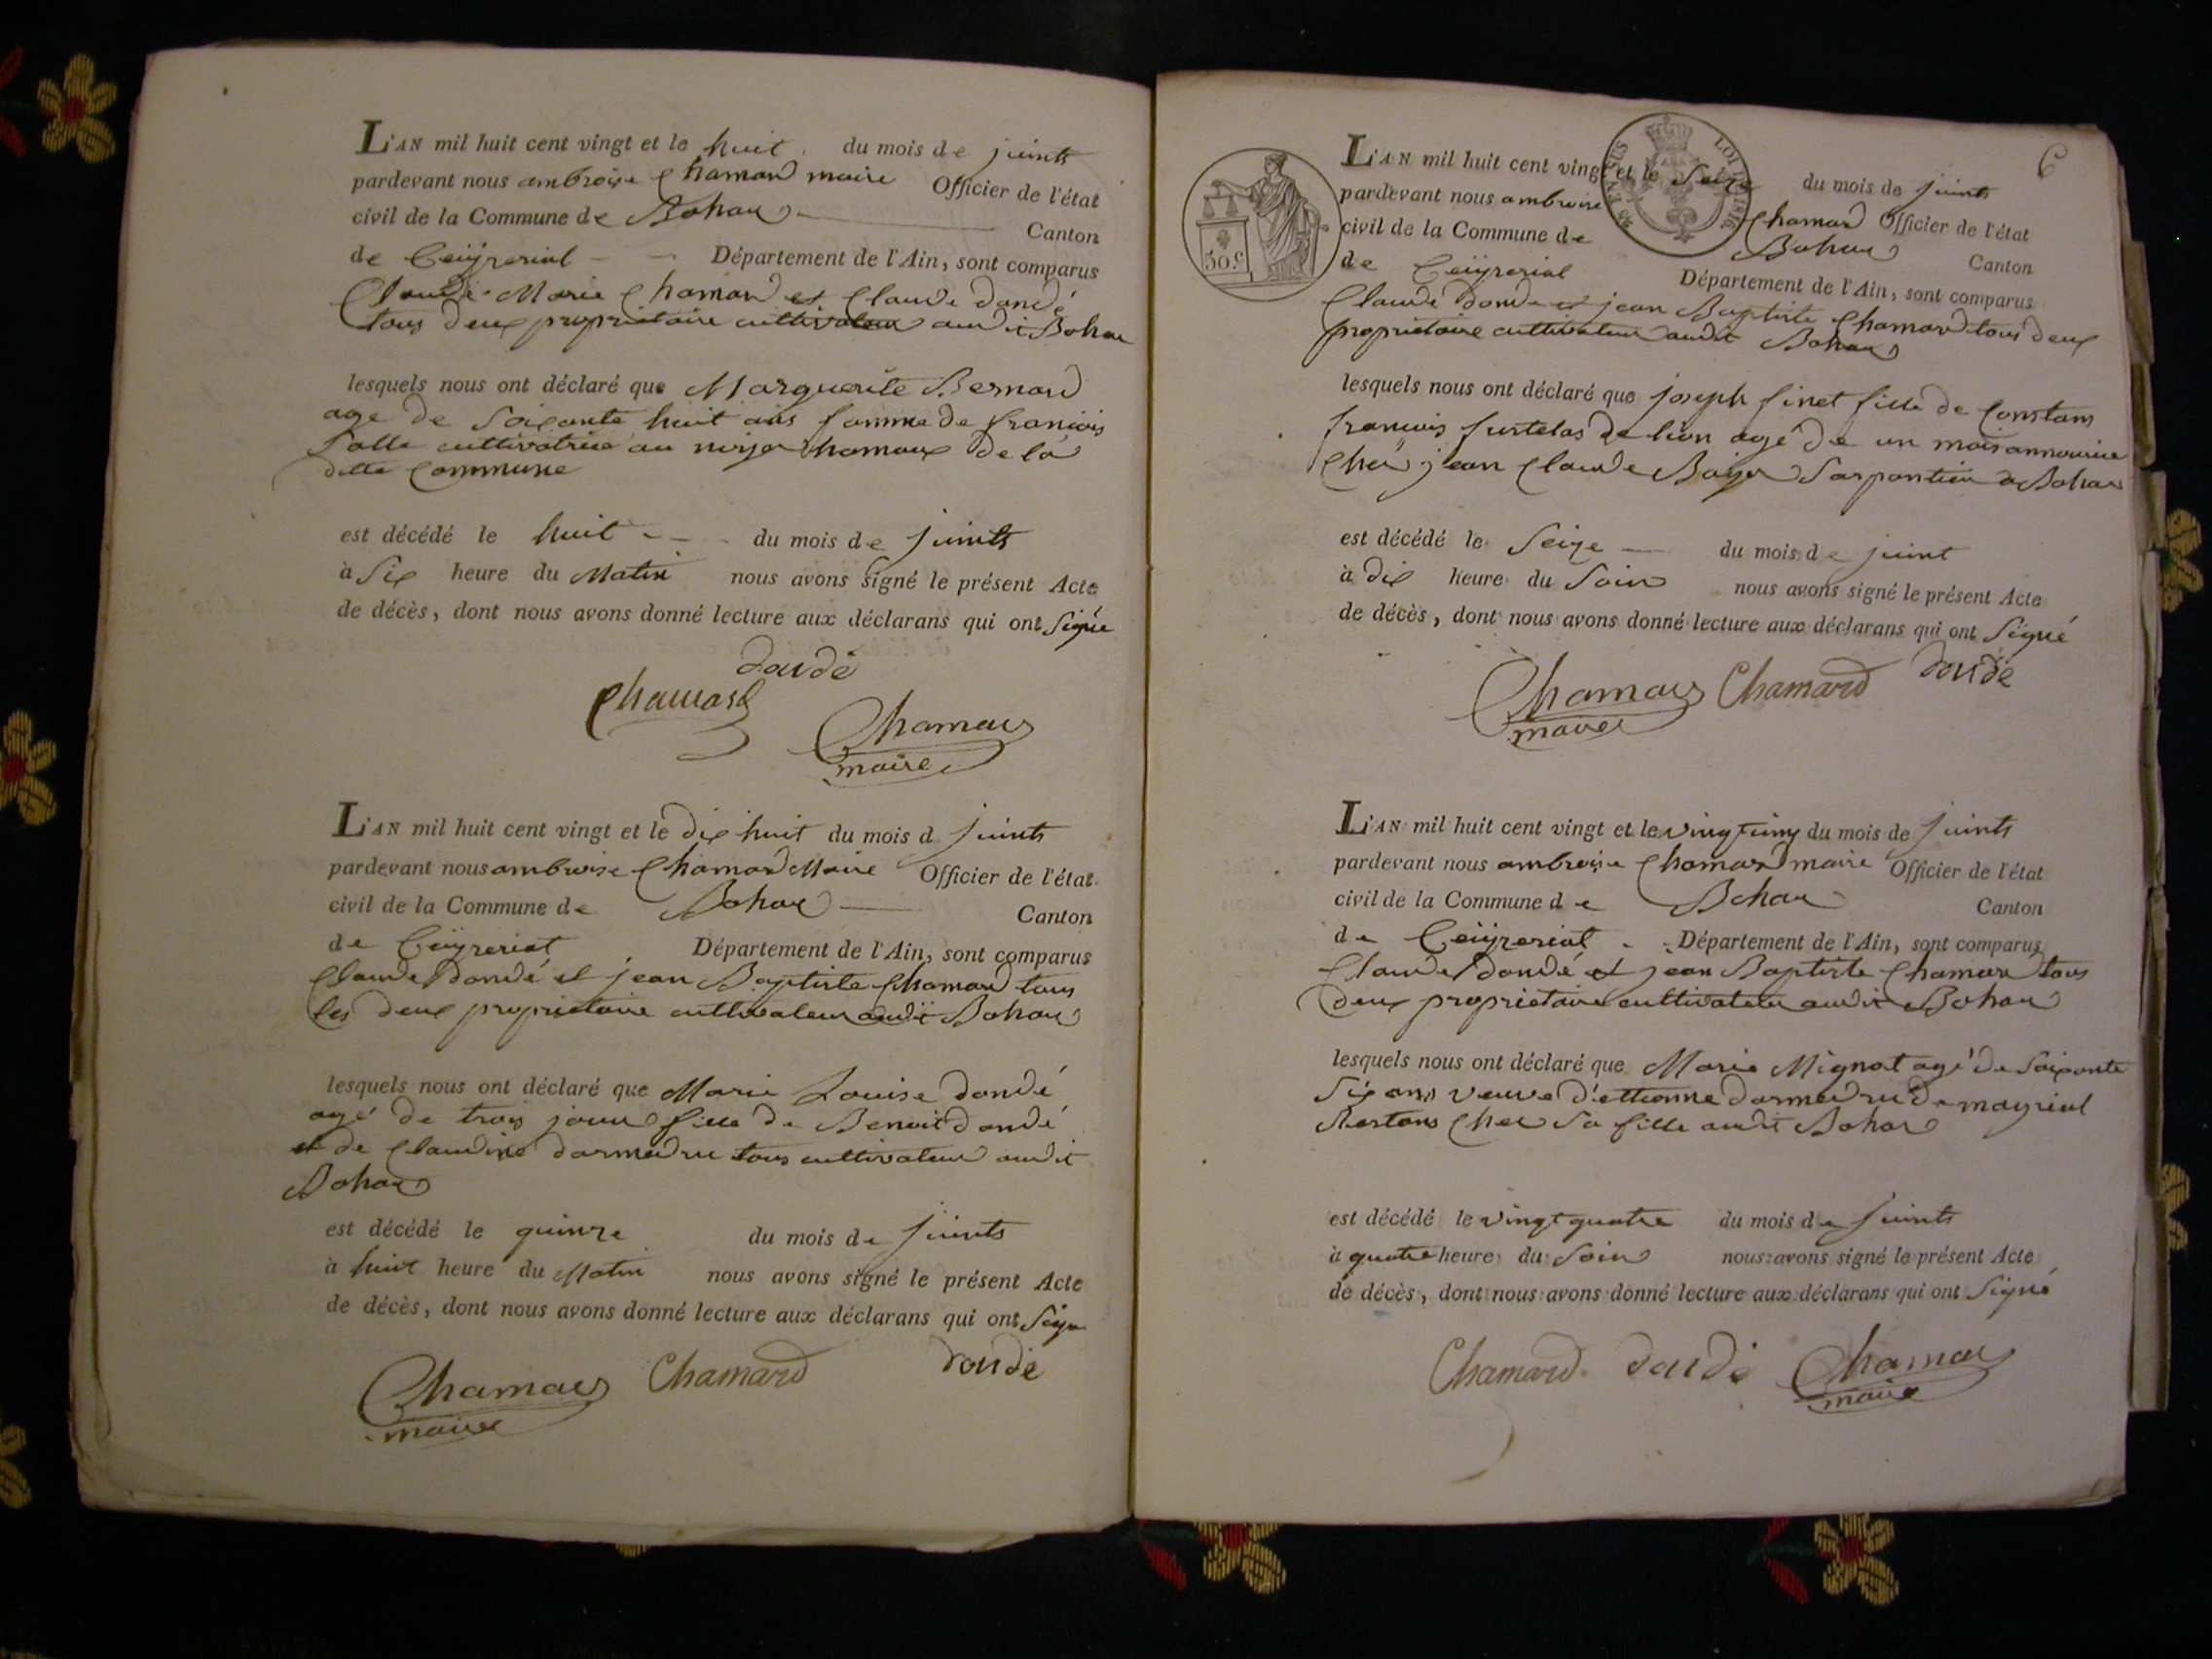 L'AN mil huit cent vingt et le huit du mois de juints
pardevant nous ambroise Chamard maire Officier de l'état
civil de la Commune de Bohan Canton
de Ceÿzeriat Département de l'Ain, sont comparus
Claude Marie Chamard et Claude dondé
tous deux proprietaire cultivateur audit Bohan
lesquels nous ont déclaré que Marguerite Bernard
age de soixante huit ans famme de francois
cultivatrice au hamaux de la
ditte Commune
est décédé le huit du mois de juints
à six heure du Matin nous avons signé le présent Acte
de décès, dont nous avons donné lecture aux déclarans qui ont Signé
dondé
Chamard
Chamard
maire
L'AN mil huit cent vingt et le dix huit du mois d juints
pardevant nous ambroise Chamard Maire Officier de l'état
civil de la Commune de Bohan Canton
de Ceÿzeriat Département de l'Ain, sont comparus
Claude dondé et jean Baptiste Chamard tous
les deux proprietaire cultivateur audit Bohan
lesquels nous ont déclaré que Marie Louise dondé
agé de trois jour fille de Benoit dondé
et de Claudine darmedru tous cultivateur audit
Bohan
est décédé le quinze du mois de juints
à huit heure du Matin nous avons signé le présent Acte
de décès, dont nous avons donné lecture aux déclarans qui ont Signé
Chamard Chamard dondé
maire
6
L'AN mil huit cent vingt et le Seize du mois de juints
pardevant nous ambroise Chamard Officier de l'état
civil de la Commune de Bohan Canton
de Ceÿzeriat Département de l'Ain, sont comparus
50.c
LOI DE 1816
Claude dondé et jean Baptiste Chamard tous deux
proprietaire cultivateur audit Bohan
lesquels nous ont déclaré que joseph finet fille de Constans
francois de lion agé de un mois annourice
Chez jean Claude Boiyer Sarpantier a Bohan
est décédé le Seize du mois de juint
à dix heure du Soir nous avons signé le présent Acte
de décès, dont nous avons donné lecture aux déclarans qui ont Signé
Chamard Chamard dondé
maire
L'AN mil huit cent vingt et le vingt cinq du mois de juints
pardevant nous ambroise Chamard maire Officier de l'état
civil de la Commune de Bohan Canton
de Ceÿzeriat Département de l'Ain, sont comparus
Claude dondé et jean Baptiste Chamard tous
deux proprietaire cultivateur audit Bohan
lesquels nous ont déclaré que Marie Mignot agé de Soixante
Six ans veuve d'ettienne darmedru de mayriat
Restans Chez Sa fille audit Bohan
est décédé le vingt quatre du mois de juints
à quatre heure du Soir nous avons signé le présent Acte
de décès, dont nous avons donné lecture aux déclarans qui ont Signé
Chamard dondé Chamard
maire